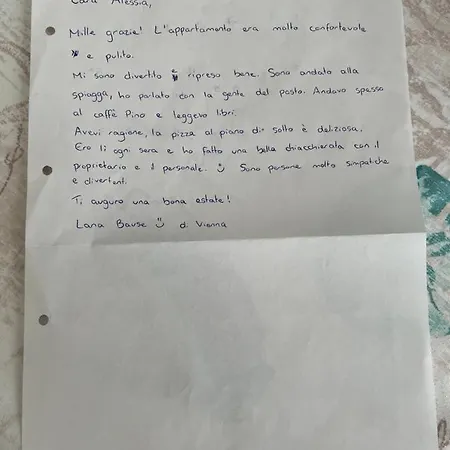 Cara Alessia,
Mille grazie! L'appartamento era molto confortevole
e pulito.
Mi sono divertito e ripreso bene. Sono andato alla
spiagga, ho parlato con la gente del posto. Andavo spesso
al caffè Pino e leggevo libri.
Avevi ragione, la pizza al piano di sotto è deliziosa.
Ero lì ogni sera e ho fatto una bella chiacchierata con il
proprietario e il personale. Sono persone molto simpatiche
e divertent.
Ti auguro una bona estate!
Lana Bause di Vienna